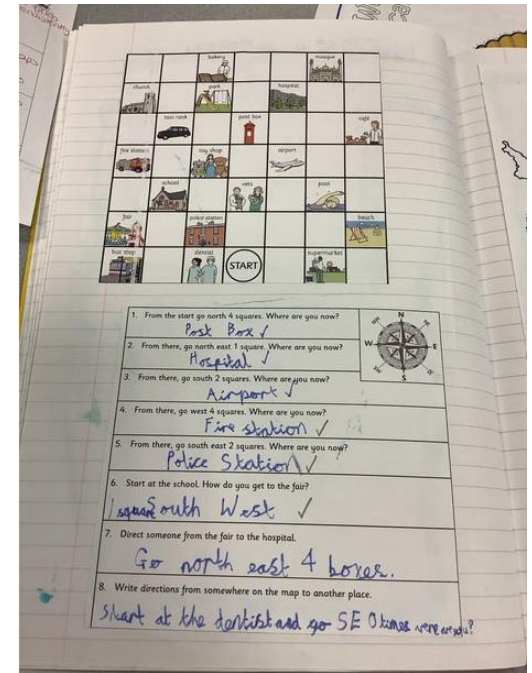 bakery mosque
church park hospital
taxi rank post box café
fire station toy shop airport
school vets pool
fair police station beach
bus stop dentist START supermarket
1. From the start go north 4 squares. Where are you now?
Post Box ✓
2. From there, go north east 1 square. Where are you now?
Hospital ✓
3. From there, go south 2 squares. Where are you now?
Airport ✓
4. From there, go west 4 squares. Where are you now?
Fire station ✓
5. From there, go south east 2 squares. Where are you now?
Police Station ✓
6. Start at the school. How do you get to the fair?
1 square South West ✓
7. Direct someone from the fair to the hospital.
Go north east 4 boxes.
8. Write directions from somewhere on the map to another place.
Start at the dentist and go SE 0 times were are you?
N
NW NE
W E
S